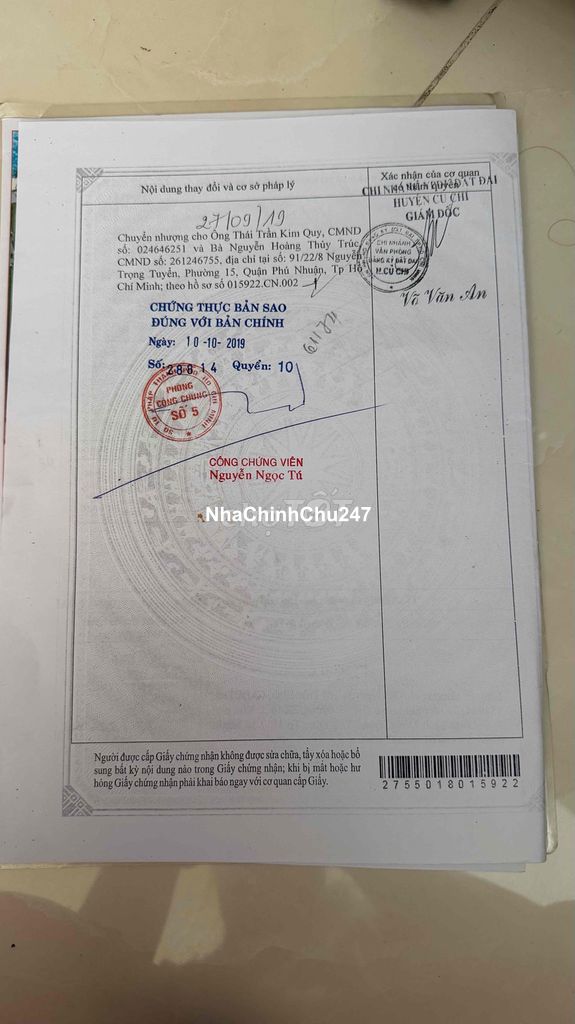 Nội dung thay đổi và cơ sở pháp lý
Xác nhận của cơ quan
có thẩm quyền
CHI NHÁNH VPĐK ĐẤT ĐAI
HUYỆN CỦ CHI
GIÁM ĐỐC
27/09/19
Chuyển nhượng cho Ông Thái Trần Kim Quy, CMND
số: 024646251 và Bà Nguyễn Hoàng Thủy Trúc,
CMND số: 261246755, địa chỉ tại số: 91/22/8 Nguyễn
Trọng Tuyển, Phường 15, Quận Phú Nhuận, Tp Hồ
Chí Minh; theo hồ sơ số 015922.CN.002
CHI NHÁNH
VĂN PHÒNG
ĐĂNG KÝ ĐẤT ĐAI
H.CỦ CHI
Võ Văn An
CHỨNG THỰC BẢN SAO
ĐÚNG VỚI BẢN CHÍNH
Ngày: 10-10-2019
Số: 28814 Quyển: 10
PHÒNG
CÔNG CHỨNG
SỐ 5
CÔNG CHỨNG VIÊN
Nguyễn Ngọc Tú
NhaChinhChu247
Người được cấp Giấy chứng nhận không được sửa chữa, tẩy xóa hoặc bổ
sung bất kỳ nội dung nào trong Giấy chứng nhận; khi bị mất hoặc hư
hỏng Giấy chứng nhận phải khai báo ngay với cơ quan cấp Giấy.
2755018015922